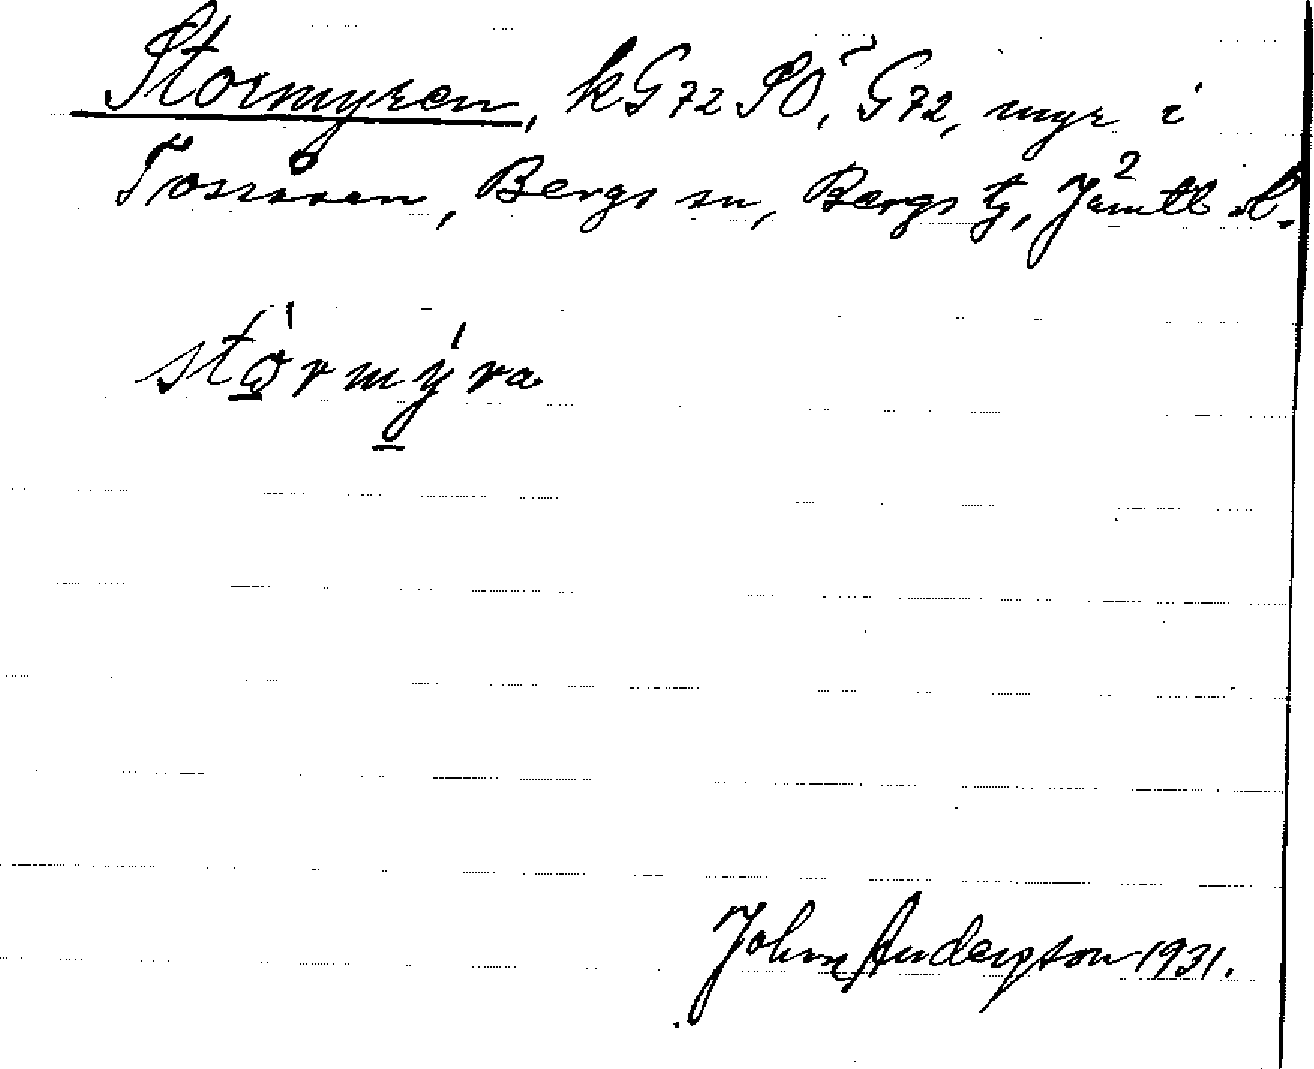 Stormyren, kG72 SO, G72, myr i
Tossåsen, Bergs sn, Bergs tg, Jämtl l.
stǫ́rmý̱ra
John Andersson 1931.